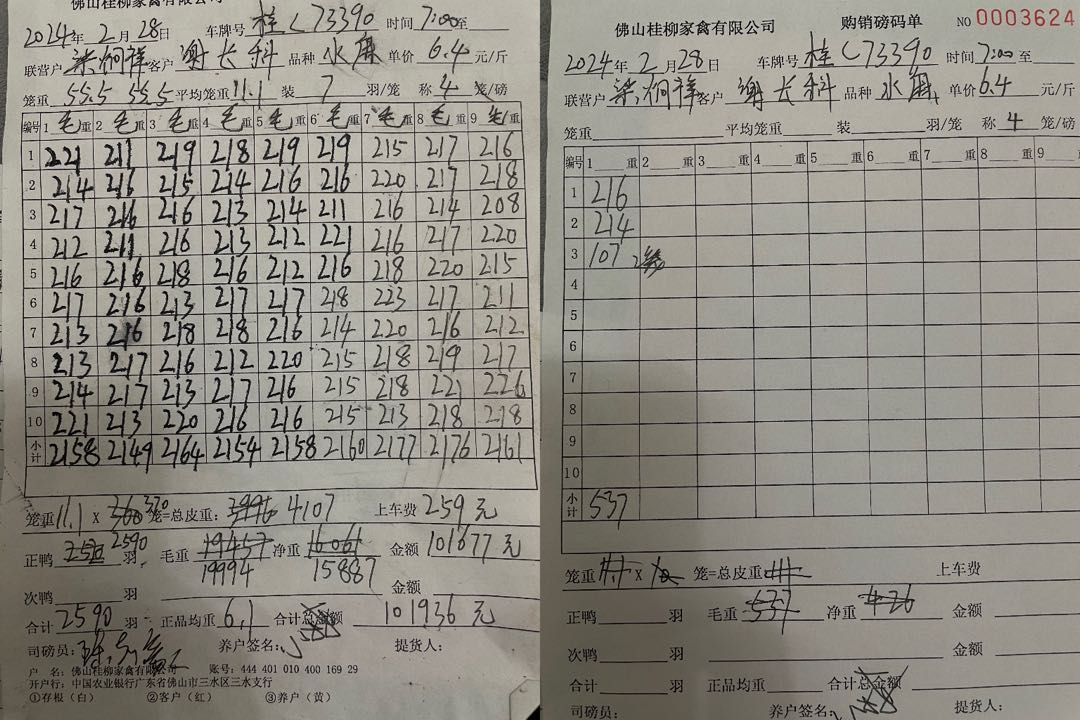 佛山桂柳家禽有限公司
2024年2月28日 车牌号 桂C73390 时间 7:00至
联营户 客户 谢长科 品种 水麻 单价 6.4 元/斤
笼重 55.5 55.5 平均笼重 11.1 装 7 羽/笼 称 4 笼/磅
编号 1 毛 重 2 毛 重 3 毛 重 4 毛 重 5 毛 重 6 毛 重 7 毛 重 8 毛 重 9 毛 重
1 221 211 219 218 219 219 215 217 216
2 214 216 215 214 216 216 220 217 218
3 217 216 216 213 214 211 216 214 208
4 212 211 216 213 212 221 216 217 220
5 216 216 218 216 212 216 218 220 215
6 217 216 213 217 217 218 223 217 211
7 213 216 218 218 216 214 220 216 212
8 213 217 216 212 220 215 218 219 217
9 214 217 213 217 216 215 218 221 226
10 221 213 220 216 216 215 213 218 218
小计 2158 2149 2164 2154 2158 2160 2177 2176 2161
笼重 11.1 X 360 370 笼=总皮重: 3996 4107 上车费 259 元
正鸭 2520 2590 羽. 毛重 19457 净重 16061 金额 101677 元
19994 15887
次鸭 羽 金额
合计 2590 羽 正品均重 6.1 合计总金额 101936 元
司磅员: 养户签名: 提货人:
户 名: 佛山桂柳家禽有限公司 账号: 444 401 010 400 169 29
开户行: 中国农业银行广东省佛山市三水区三水支行
①存根(白) ②客户(红) ③养户(黄)
佛山桂柳家禽有限公司 购销磅码单 NO 0003624
2024年2月28日 车牌号 桂C73390 时间 7:00至
联营户 客户 谢长科 品种 水麻 单价 6.4 元/斤
笼重 平均笼重 装 羽/笼 称 4 笼/磅
编号 1 重 2 重 3 重 4 重 5 重 6 重 7 重 8 重 9
1 216
2 214
3 107 2笼
4
5
6
7
8
9
10
小计 537
笼重 11.1 X 10 笼=总皮重 111 上车费
正鸭 羽 毛重 537 净重 426 金额
次鸭 羽 金额
合计 羽 正品均重 合计总金额
司磅员: 养户签名: 提货人: